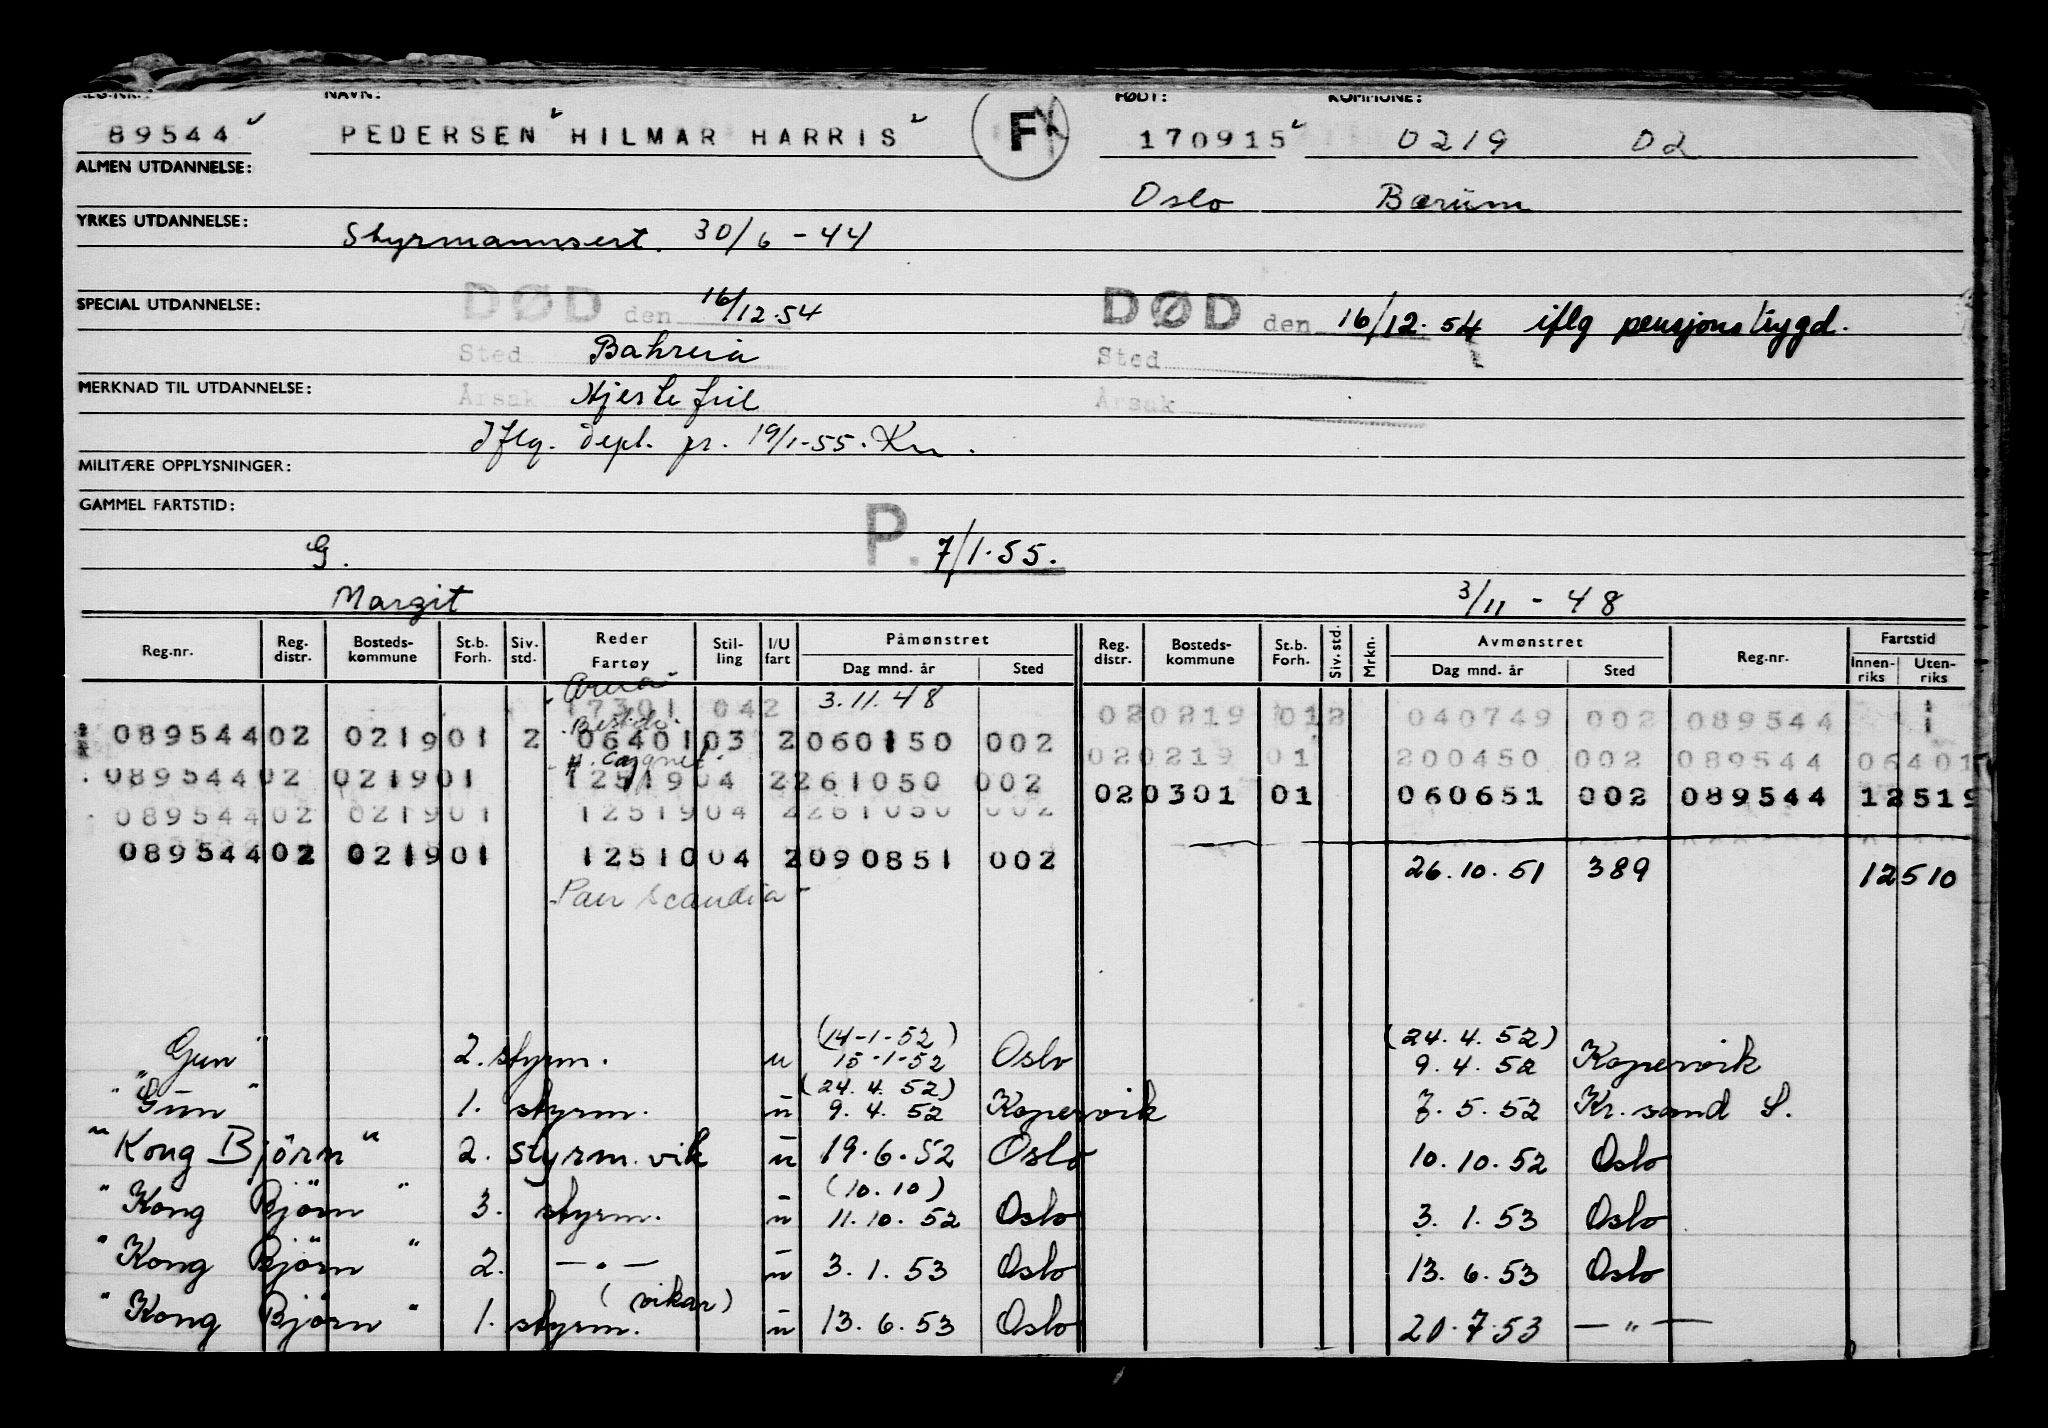 REG.NR.: NAVN: FØDT: KOMMUNE:
89544 PEDERSEN HILMAR HARRIS F 170915 0219 02
ALMEN UTDANNELSE:
Oslo Bærum
YRKES UTDANNELSE:
Styrmannsert. 30/6 - 44
SPECIAL UTDANNELSE:
DØD den 16/12.54 DØD den 16/12.54 iflg pensjonstrygd.
Sted Bahrein Sted
MERKNAD TIL UTDANNELSE:
Årsak Hjertefeil Årsak
Iflg. dept. pr. 19/1-55. Kn.
MILITÆRE OPPLYSNINGER:
GAMMEL FARTSTID:
G. P. 7/1.55.
Margit 3/11 - 48
Reg.nr. Reg. distr. Bosteds-kommune St.b. Forh. Siv. std. Reder Fartøy Stil-ling I/U fart Påmønstret Dag mnd. år Sted Reg. distr. Bosteds-kommune St.b. Forh. Siv. std. Mrkn. Avmønstret Dag mnd. år Sted Reg.nr. Fartstid Innen-riks Uten-riks
17301 042 3.11.48 020219 012 040749 002 089544
089544 02 0219 01 2 06401 03 2 060150 002
020219 01 200450 002 089544 06401
089544 02 0219 01 12519 04 2 261050 002
020301 01 060651 002 089544 12519
089544 02 0219 01 12519 04 2 261050 002
089544 02 0219 01 12510 04 2 090851 002 26.10.51 389 12510
Pan Scandia
(14-1-52) (24.4.52)
"Gun" 2. styrm. u 15-1-52 Oslo 9.4.52 Kopervik
(24.4.52)
"Gun" 1. styrm. u 9.4.52 Kopervik 7.5.52 Kr.sand S.
"Kong Bjørn" 2. styrm. vik u 19.6.52 Oslo 10.10.52 Oslo
(10.10)
"Kong Bjørn" 3. styrm. u 11.10.52 Oslo 3.1.53 Oslo
"Kong Bjørn" 2. —"— u 3.1.53 Oslo 13.6.53 Oslo
(vikar)
"Kong Bjørn" 1. styrm. u 13.6.53 Oslo 20.7.53 —"—